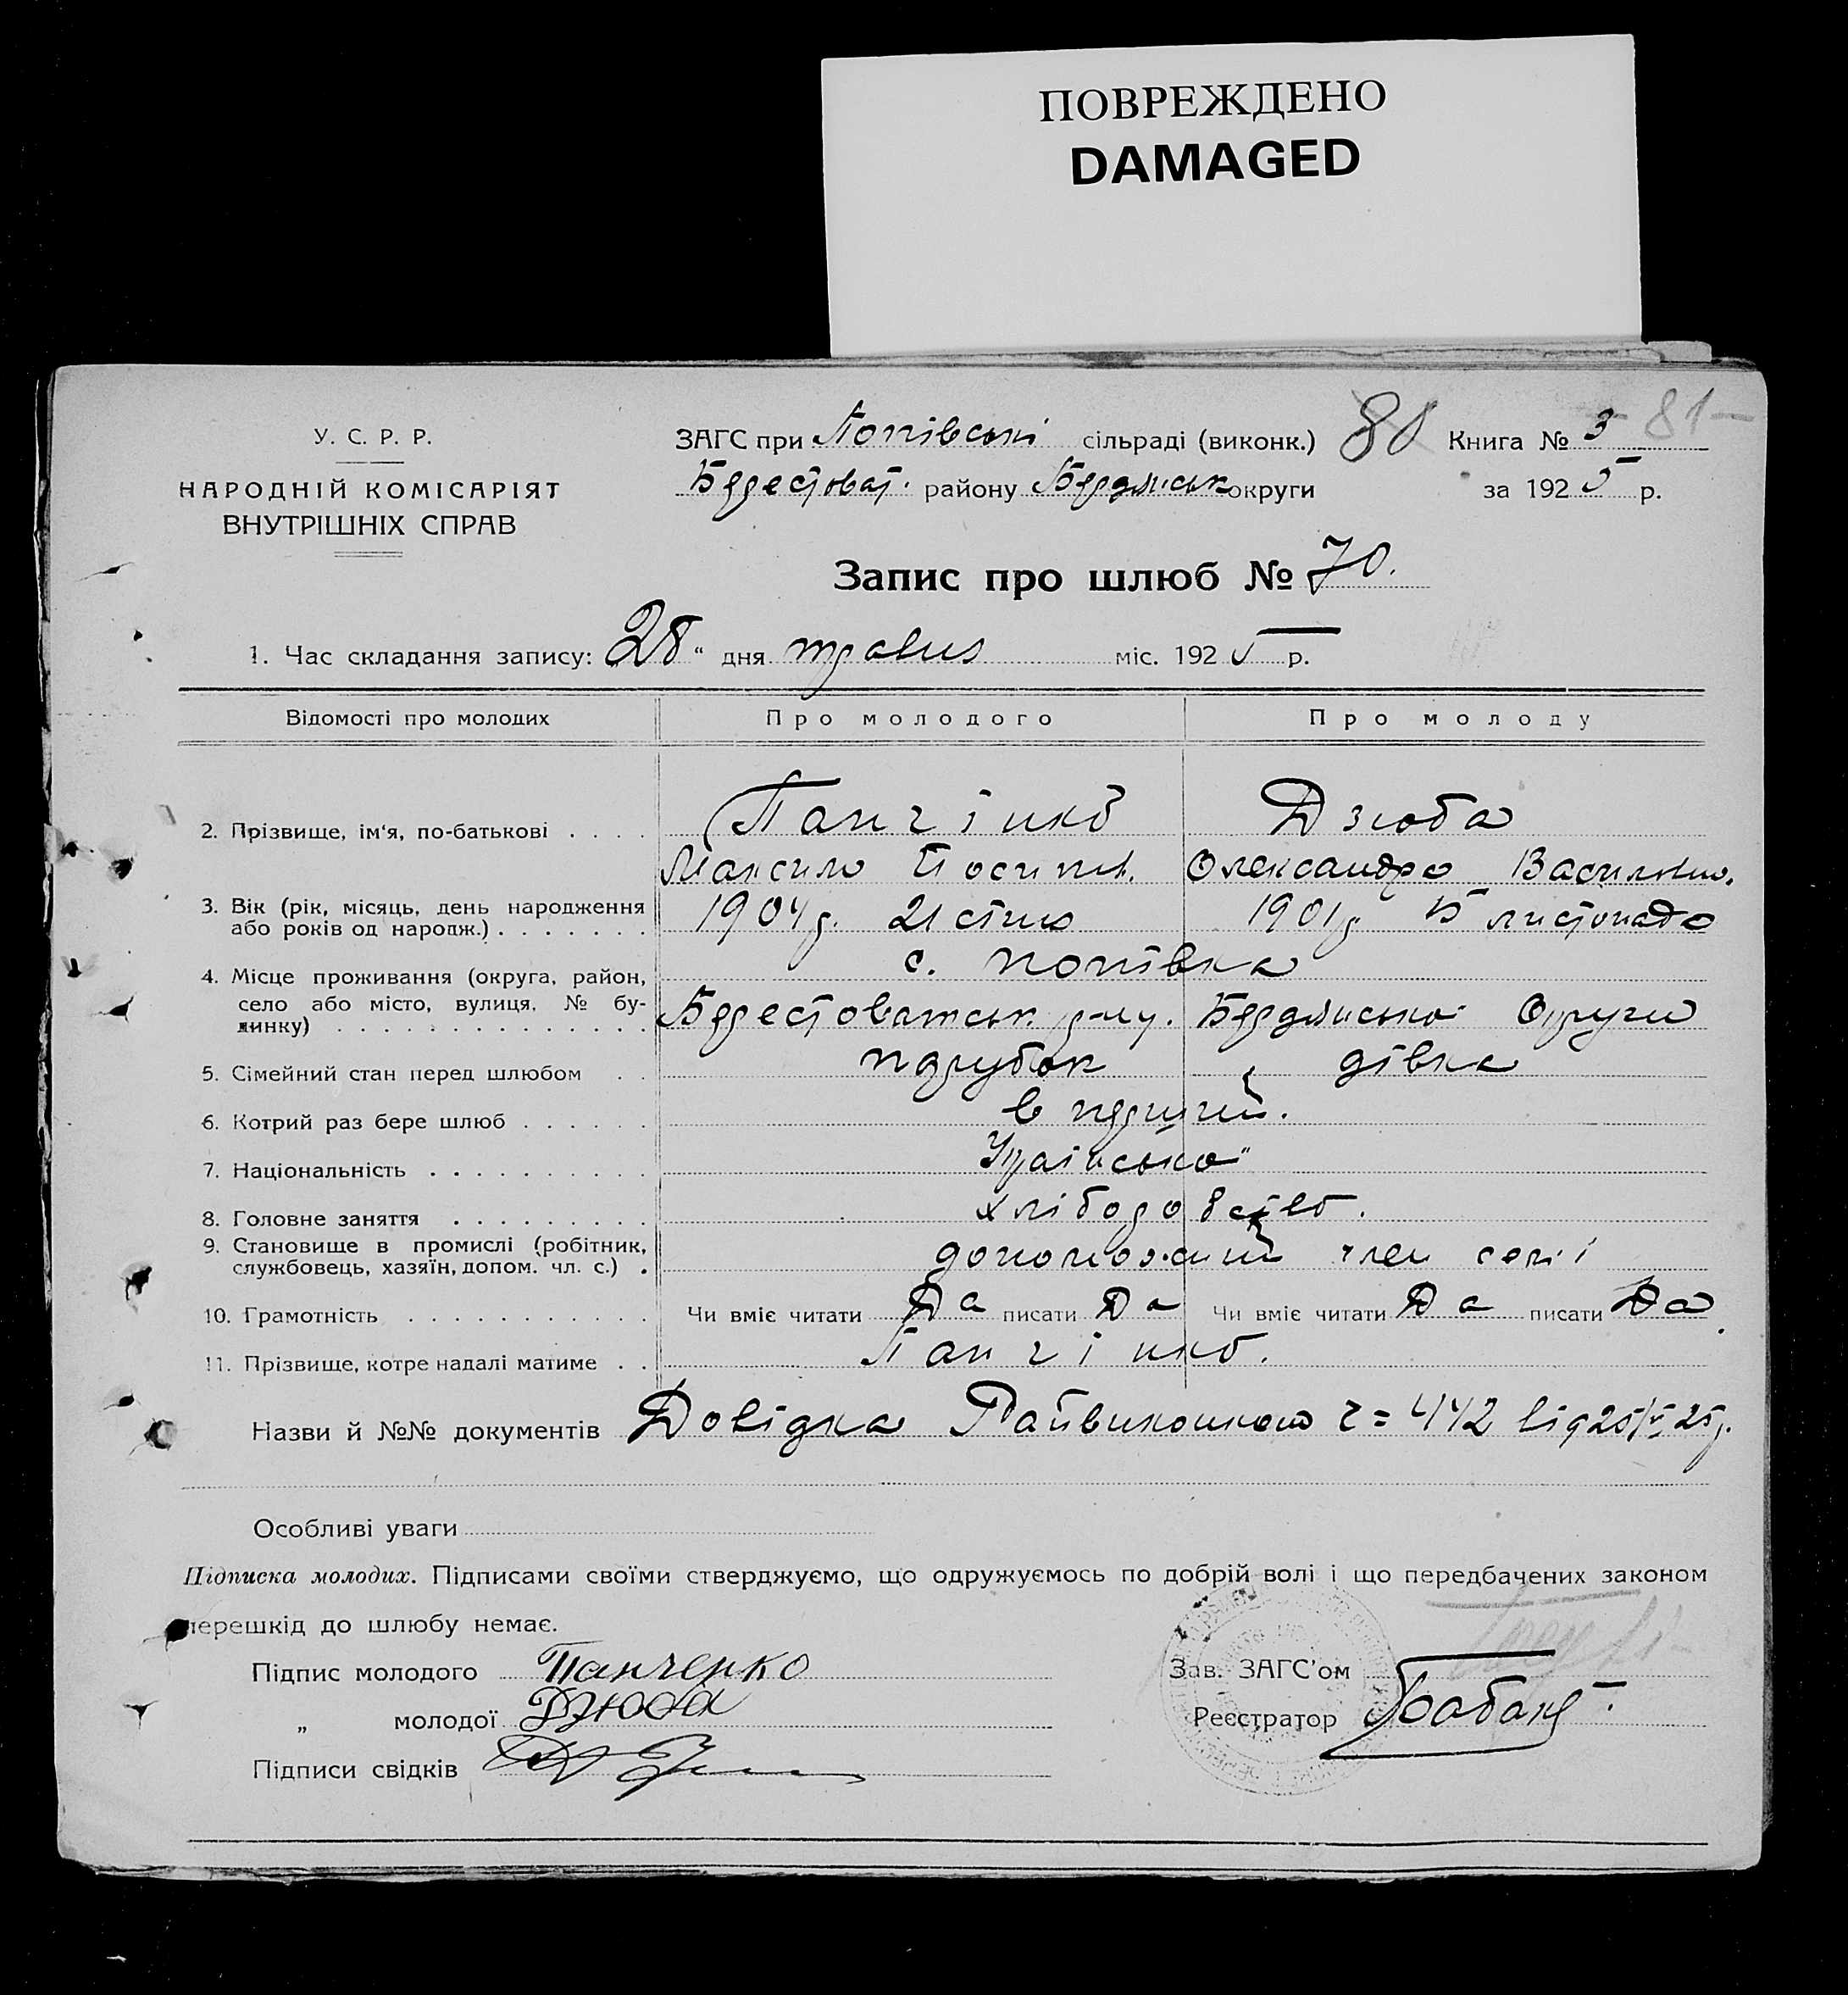 ПОВРЕЖДЕНО
DAMAGED
У. С. Р. Р.
НАРОДНІЙ КОМІСАРІЯТ
ВНУТРІШНІХ СПРАВ
ЗАГС при Попівські сільраді (виконк.) 80 Книга № 3 81
Берестоват. району Бердянськ округи за 1925 р.
Запис про шлюб № 70.
1. Час складання запису: „28" дня травня міс. 1925 р.
Відомості про молодих Про молодого Про молоду
2. Прізвище, ім'я, по-батькові . . . . Панчінко Дзюба
Максим Йосипів. Олександра Васильівн.
3. Вік (рік, місяць, день народження або років од народж.) . . . . . . . 1904р. 21 січня 1901р. 5 листопада
4. Місце проживання (округа, район, село або місто, вулиця, № будинку) . . . . . . . . . . . . . . с. Попівка
Берестоватськ. р-ну. Бердянської Округи
5. Сімейний стан перед шлюбом . . парубок дівка
6. Котрий раз бере шлюб . . . . . . в перший.
7. Національність . . . . . . . . . . Українська
8. Головне заняття . . . . . . . . . хліборобство.
9. Становище в промислі (робітник, службовець, хазяїн, допом. чл. с.) . допоможний член семі
10. Грамотність . . . . . . . . . . . Чи вміє читати Да писати Да Чи вміє читати Да писати Да
11. Прізвище, котре надалі матиме . . Панчінко.
Назви й №№ документів Довідка Райвиконком ч= 442 від 25/V 25р.
Особливі уваги
Підписка молодих. Підписами своїми стверджуємо, що одружуємось по добрій волі і що передбачених законом
перешкід до шлюбу немає.
Підпис молодого Панченко
Зав. ЗАГС'ом
„ молодої Дзюба
Реєстратор
Підписи свідків